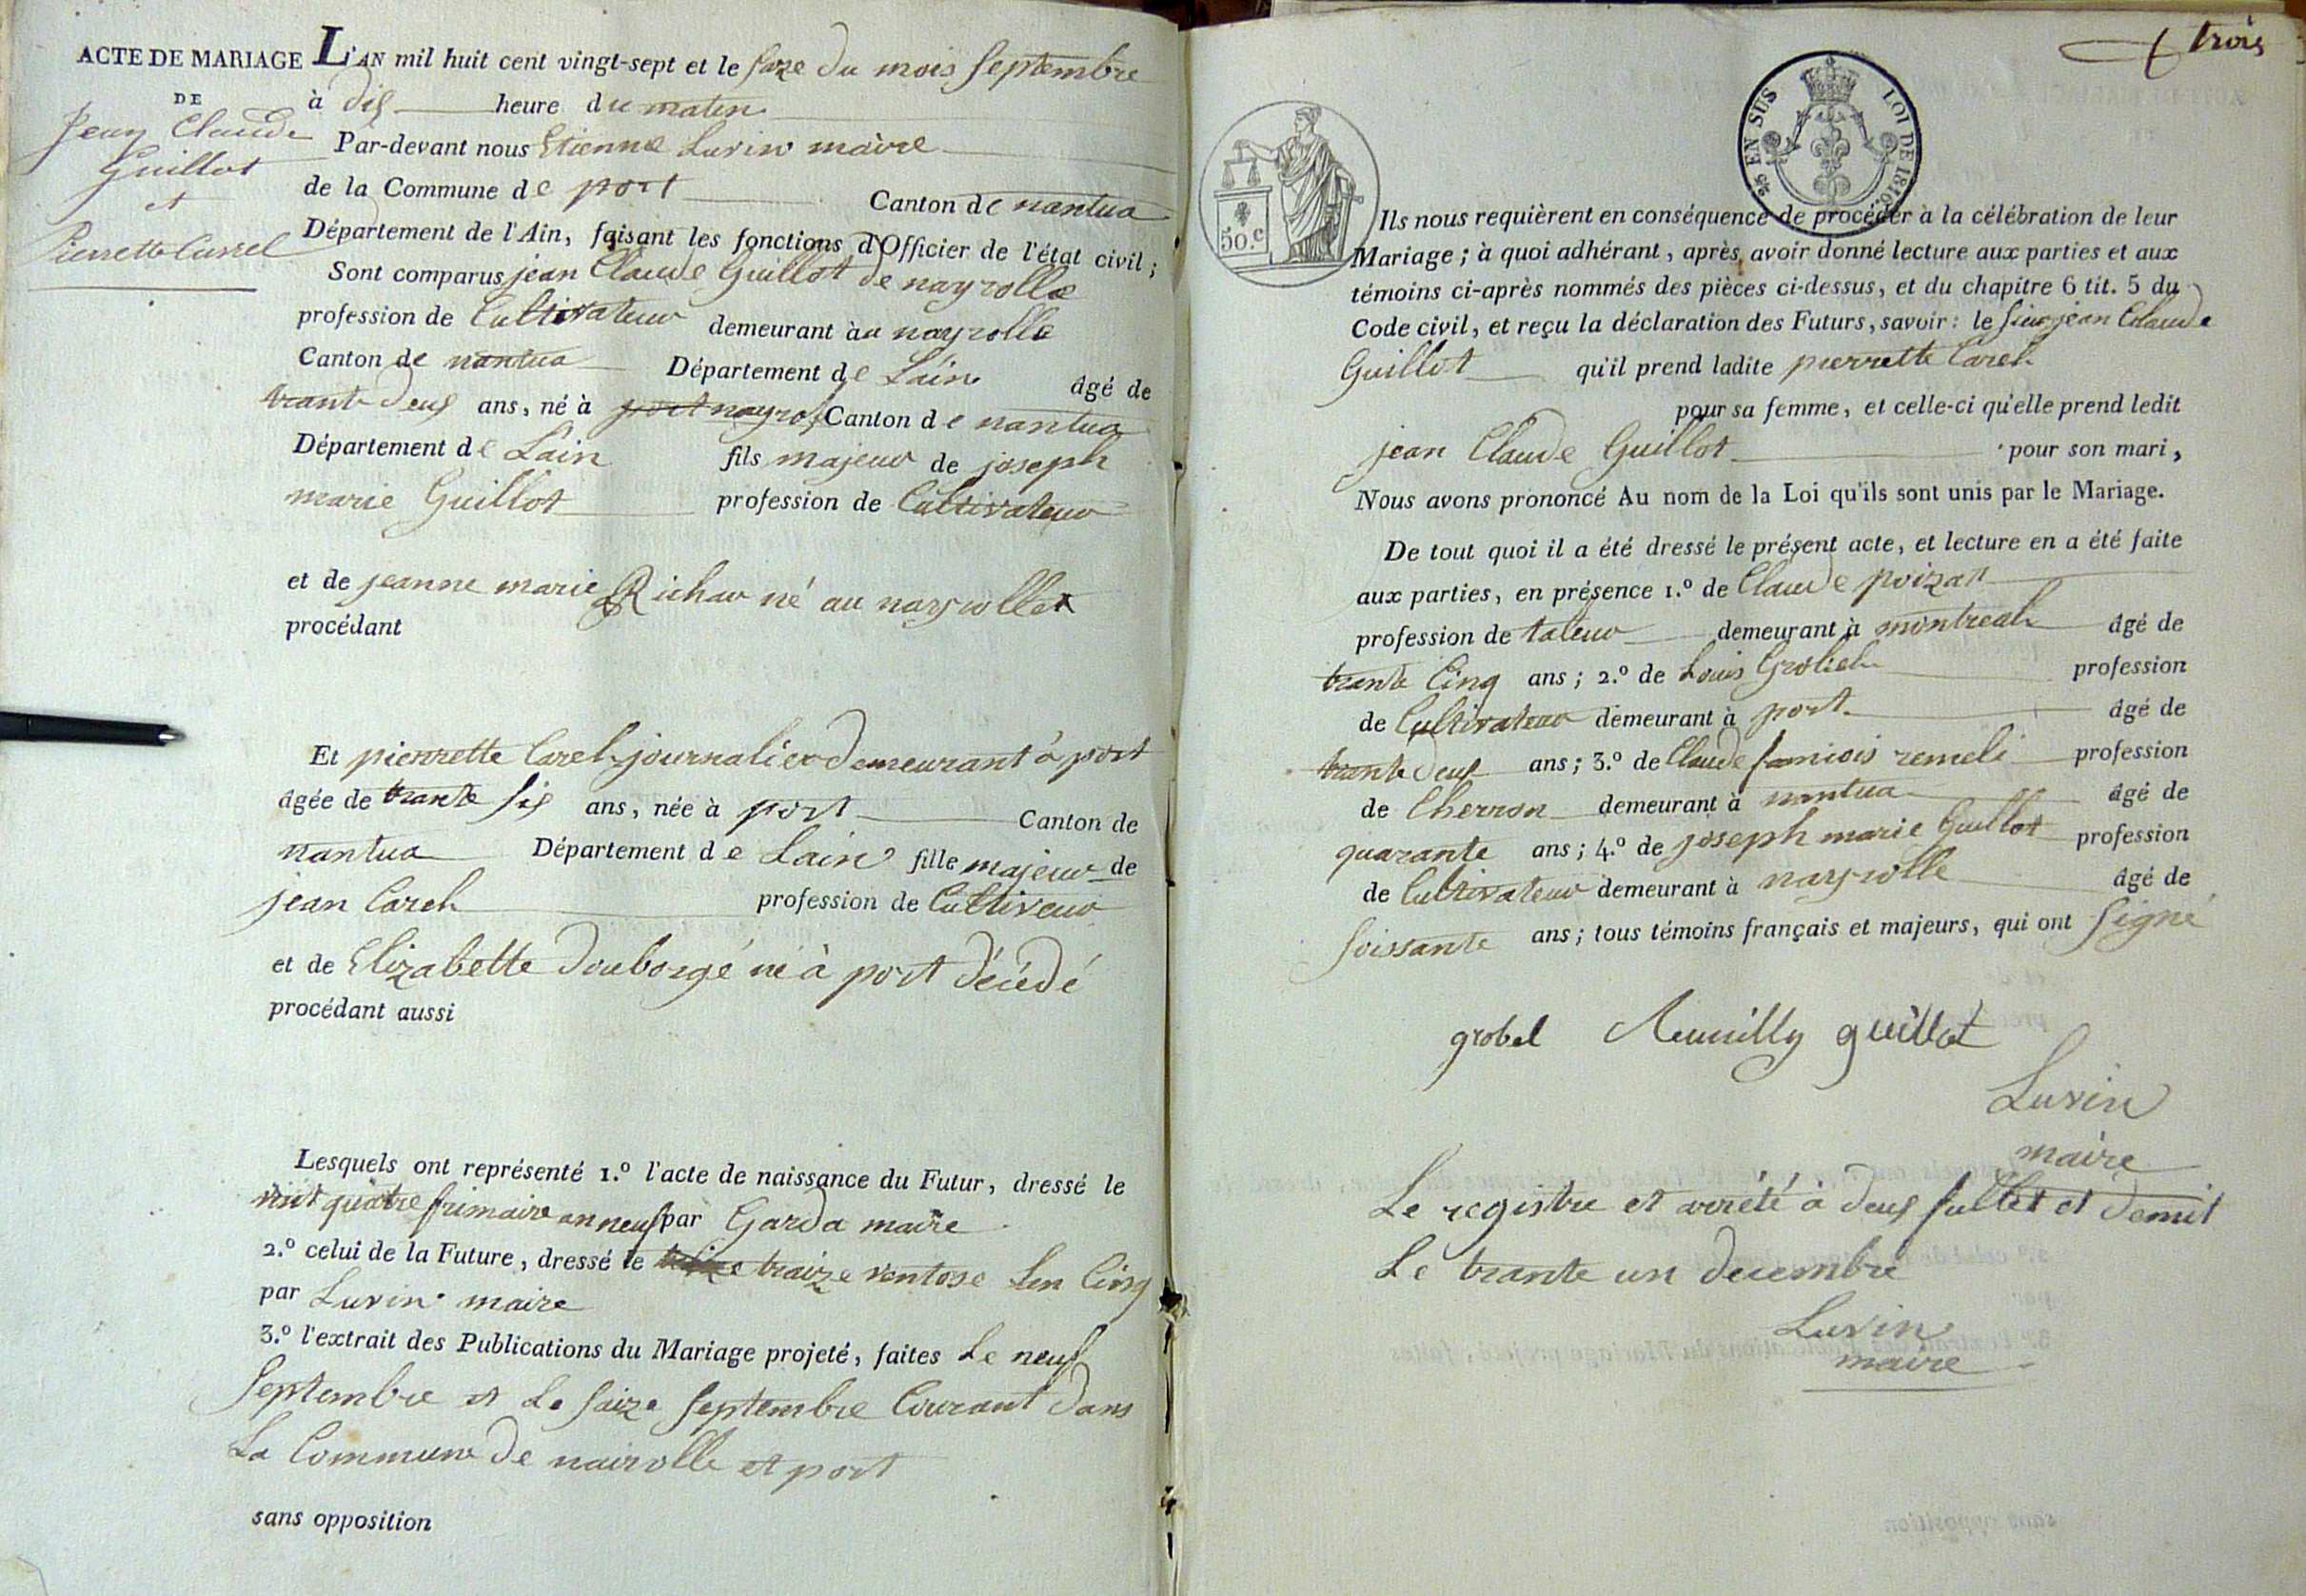 ACTE DE MARIAGE L'AN mil huit cent vingt-sept et le saze du mois septembre
DE
Jean Claude
Guillot
et
Pierrette Carrel
à dix heure du maten
Par-devant nous Etienne Luvin maire
de la Commune de port Canton de nantua
Département de l'Ain, faisant les fonctions d'Officier de l'état civil;
Sont comparus jean Claude Guillot de nayrolle
profession de Cultivateur demeurant àu nayrolle
Canton de nantua Département de Láin âgé de
trante deux ans, né à port nayrol Canton de nantua
Département de Lain fils majeur de joseph
marie Guillot profession de Cultivateur
et de jeanne marie Richar né au nayrolle
procédant
Et pierrette Carel journalier demeurant à port
âgée de trante six ans, née à port Canton de
nantua Département de Lain fille majeur de
jean Carel profession de Cultiveur
et de Elizabette Douborgé né à port décédé
procédant aussi
Lesquels ont représenté 1.º l'acte de naissance du Futur, dressé le
vint quatre frimaire an neuf par Garda maire
2.º celui de la Future, dressé le traize ventose Len Cinq
par Luvin maire
3.º l'extrait des Publications du Mariage projeté, faites Le neuf
Septembre et Le saize septembre Courant dans
La Commune de nairolle et port
sans opposition
trois
EN SUS LOI DE 1816
50.c
Ils nous requièrent en conséquence de procéder à la célébration de leur
Mariage; à quoi adhérant, après avoir donné lecture aux parties et aux
témoins ci-après nommés des pièces ci-dessus, et du chapitre 6 tit. 5 du
Code civil, et reçu la déclaration des Futurs, savoir: le sieur jean Claude
Guillot qu'il prend ladite pierrette Carel
pour sa femme, et celle-ci qu'elle prend ledit
jean Claude Guillot pour son mari,
Nous avons prononcé Au nom de la Loi qu'ils sont unis par le Mariage.
De tout quoi il a été dressé le présent acte, et lecture en a été faite
aux parties, en présence 1.º de Claude poizat
profession de taleur demeurant à montreal âgé de
trante Cinq ans; 2.º de Louis Grobel profession
de Cultivateur demeurant à port âgé de
trante deux ans; 3.º de Claude remeli profession
de Cherron demeurant à nantua âgé de
quarante ans; 4.º de joseph marie Guillot profession
de Cultivateur demeurant à nayrolle âgé de
soissante ans; tous témoins français et majeurs, qui ont signé
grobel Remilly guillot
Luvin
maire
Le registre et arrété à deux fullet et demit
Le trante un decembre
Luvin
maire